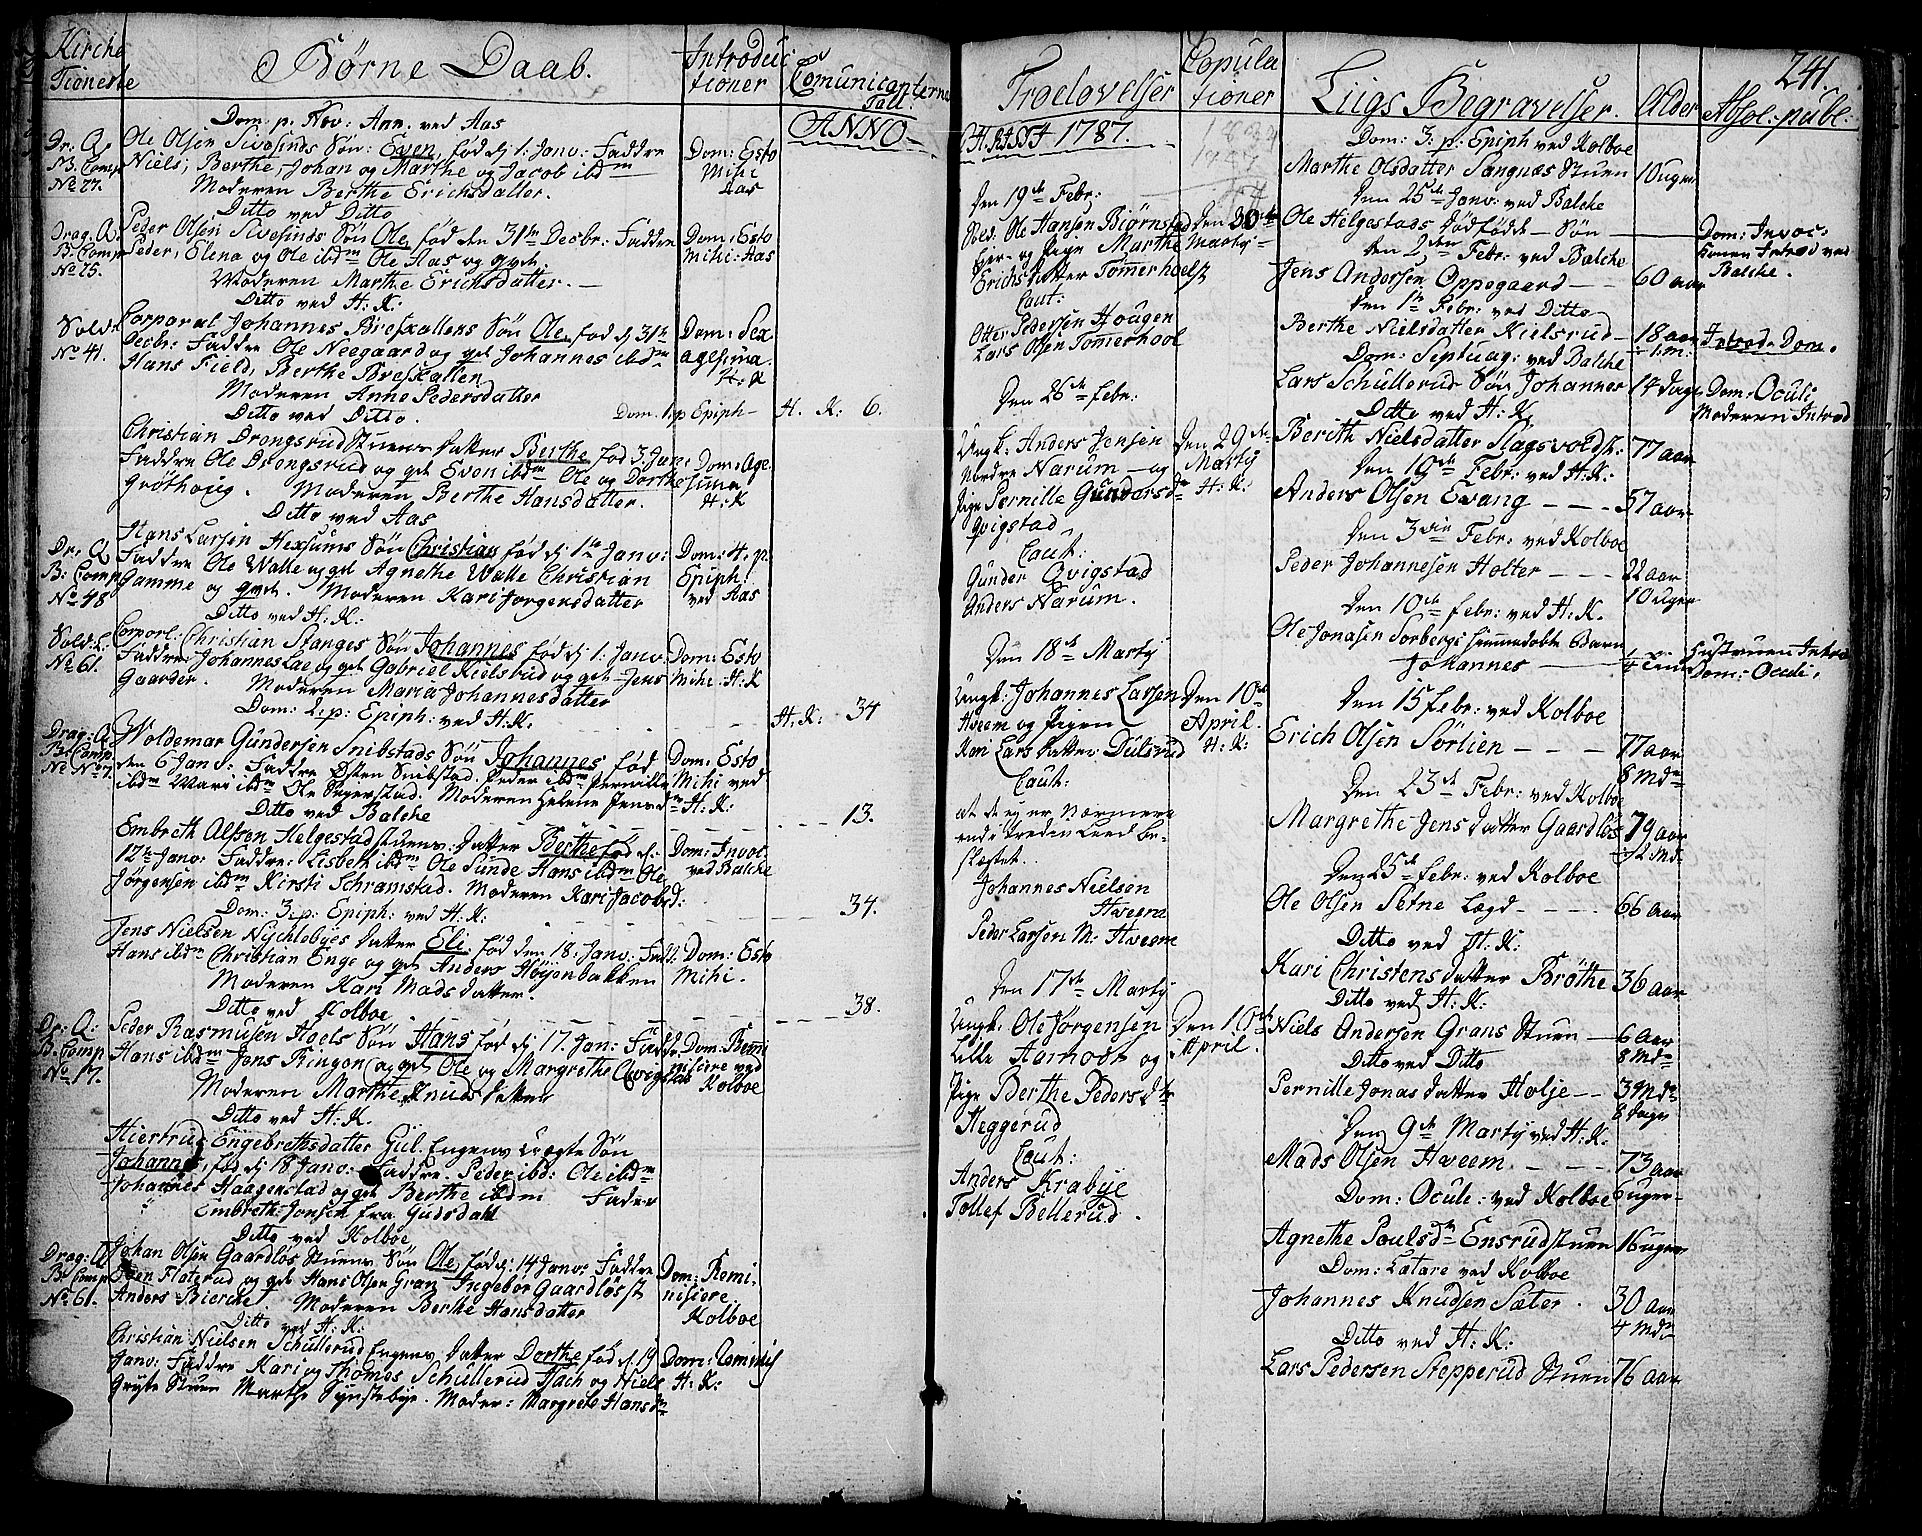 Kirche
Tieneste
Børne Daab.
Introduc
tioner
Comunicanternes
Tall.
Dom. p. Nov: Ann. ved Aas
ANNO
Dr. Q.
B. Comp
No 77.
Ole Olsen Sivesinds Søn: Even, fød d: 1: Janv: Faddre
Niels, Berthe, Johan og Marthe og Jacob ibdm
Moderen Berthe Erichsdatter.
Dom: Esto
Mihi
Aas
Ditto ved Ditto
Drag. Q.
B: Comp
No 75.
Peder Olsen Sivesinds Søn Ole, fød den 31te Decbr: Faddre
Peder, Elena og Ole ibdm Ole Aas og qvd.
Moderen Marthe Erichsdatter.
Dom: Esto
mihi: Aas
Ditto ved H: K:
Sold:
No 41.
Corporal Johannes Brefkallens Søn Ole, fød d: 31te
Decbr: Faddre Ole Neegaard og qvd Johannes ibdm
Hans Field, Berthe Brefkallen
Moderen Anne Pedersdatter
Dom: Sex
agesima.
H: K
Ditto ved Ditto.
Dom. 1 p Epiph - H. K: 6.
Christian Drongsrud Stuens Datter Berthe fød 3 Jan:
Faddre Ole Drongsrud og qvd Even ibdm Ole og Dorthe
Grøthoug. Moderen Berthe Hansdatter.
Dom: Age
sima
H: K
Ditto ved Aas
Dr: Q
B: Comp
No 48
Hans Larsen Hexsums Søn Christian fød d: 1te Janv:
Faddre Ole Walle og qvd Agnethe Walle Christian
Gamme og qvd. Moderen Kari Jorgensdatter
Dom: 4. p.
Epiph:
ved Aas
Ditto ved H: K:
Sold: L:
No 61.
Corporl: Christian Stanges Søn Johannes fød d: 1: Janv:
Faddre Johannes Lae og qvd Gabriel Kielsrud og qvd - Jens
Gaarder. Moderen Maria Johannesdatter
Dom: Esto
Mihi: H: K
Dom: 2. p: Epiph: ved H: K. H: K: 34
Drag: Q.
B: Comp
No 7.
Woldemar Gundersen Snibstads Søn Johannes fød
den 6 Janv: Faddre Østen Snibstad. Peder ibdm Pernille
ibdm Mari ibdm Ole Segerstad. Moderen Helene Jensdr
Dom: Esto
Mihi ved
H: K:
Ditto ved Balche 13.
Embreth Alfsen Helgestad stuens: Datter Berthe fød d:
12te Janv: Faddre: Lisbeth ibdm Ole Sunde Hans ibdm Ole
Jørgensen ibdm Kirsti Schramstad. Moderen Kari Jacobsd:
Dom: Invoc
ved Balche
Dom: 3. p: Epiph: ved H: K: 34.
Jens Nielsen Nychlebyes Datter Eli, fød den 18. Janv: Fadd:
Hans ibdm Christian Enge og qvd Anders Høyenbakken
Moderen Kari Madsdatter.
Dom: Esto
Mihi.
Ditto ved Kolboe 38.
Dr: Q:
B. Comp
No 17.
Peder Rasmusen Hoels Søn Hans fød d: 17. Jan: Faddre
Hans ibdm Jens Ringen og qvd Ole og Margrethe Qvigstad
Moderen Marthe Knudsdatter
Dom: Remi
niscere ved
Kolboe
Ditto ved H. K.
Hiertrud Engebrethsdatter Gül. Engens Uægte Søn
Johannes, fød d: 18 Janv: Faddre. Peder ibd: Ole ibdm
Johannes Haagenstad og qvd Berthe ibdm Fader
Embreth Jonsen fra Gudsdahl
Ditto ved Kolboe
Drag: Q
B: Comp
No 61.
Johan Olsen Gaardløs Stuens Søn Ole, fød d: 14 Janv: Faddre
Even Floterud og qvd Hans Olsen Gran Ingebor Gaardløs st
Anders Bierche. Moderen Berthe Hansdatter
Dom: Remi
niscere.
Kolboe
Ditto ved H: K:
Christian Nielsen Schullerud Engens Datter Dorthe fød d. 19
Janv: Faddre Kari og Thomas Schullerud Tach og Niels
Gryte Stuen Marthe Synstebye. Moder: Margrete Hansdr
Dom: Reminis
H: K:
Troelovelser
Copula
tioner
CHRISTI 1787.
1834
1787
Den 19de Febr:
Sold. Ole Hansen Bjørnstad
Ejer- og Pigen Marthe
Erichsdatter Tømerhoels
Caut:
Otter Pedersen Hougen
Lars Olsen Tømerhoel
Den 30te
Marty
Den 26de febr:
Ungk: Anders Jensen
Nordre Narum - og
Pige Pernille Gundersdr
Qvigstad
Caut:
Gunder Qvigstad
Anders Narum.
Den 29de
Marty
H: K:
Den 18de Marty
Ungk: Johannes Larsen
Hveem og Pigen
Kari Larsdatter Dulsrud
Caut:
at de ey er nærmere
end i tredie Leed be-
slegtet.
Johannes Nielsen
Hveem
Peder Larsen M: Hveem
Den 10de
April.
H: K:
Den 17de Marty
Ungk: Ole Jørgensen
Lille Aarnodt og
Pige Berthe Pedersdr
Heggerud
Caut:
Anders Krabye
Tollef Bellerud.
Den 10de
April.
Liigs Begravelser.
Alder
Absol: publ:
241.
Dom: 3. p. Epiph ved Kolboe
Marthe Olsdatter Sangnæs Stuen 10 uger
Den 25de Janv: ved Balche
Ole Helgestads Dødfødt Søn
Dom: Invoc:
Konen Introd ved
Balche.
Den 2den Febr: ved Balche
Jens Andersen Oppegaard 60 aar
Den 1te Febr: ved Ditto
Berthe Nielsdatter Kielsrud 18 aar
1 m:
Introd. Dom.
Dom: Septuag: ved Balche
Lars Schullerud Søn Johannes 14 Dage
Dom: Oculi,
Moderen Introd
Ditto ved H: K.
Berith Nielsdatter Slagsvoldst: 77 aar
Den 19de Febr: ved H: K:
Anders Olsen Evang 57 aar
Den 3die Febr: ved Kolboe
Peder Johannesen Holter 22 aar
10 uger
Den 10de febr: ved H: K.
Ole Jonasen Sorbergs hiemmedøbte Barn
Johannes
Hustruen Introd
Dom: Oculi.
Den 15 febr: ved Kolboe
Erich Olsen Sørlien 77 aar
8 Mdr
Den 23de Febr: ved Kolboe
Margrethe Jensdatter Gaardløs 79 aar
Den 25de febr: ved Kolboe
Ole Olsen Setne Lægd 66 aar
Ditto ved H: K:
Kari Christensdatter Brøthe 36 aar
Ditto ved H: K:
Niels Andersen Grans Stuen 6 aar
8 Mdr
Ditto ved Ditto
Pernille Jonasdatter Holje 3 Mdr
8 Dage
Den 9de Marty ved H: K:
Mads Olsen Hveem 73 aar
6 uger
Dom: Ocule: ved Kolboe
Agnethe Poulsdr Ensrud stuen 16 uger
Dom: Lætare ved Kolboe
Johannes Knudsen Sæter. 30 aar
4 Mdr
Ditto ved H: K:
Lars Pedersen Stepperud Stuen 76 aar